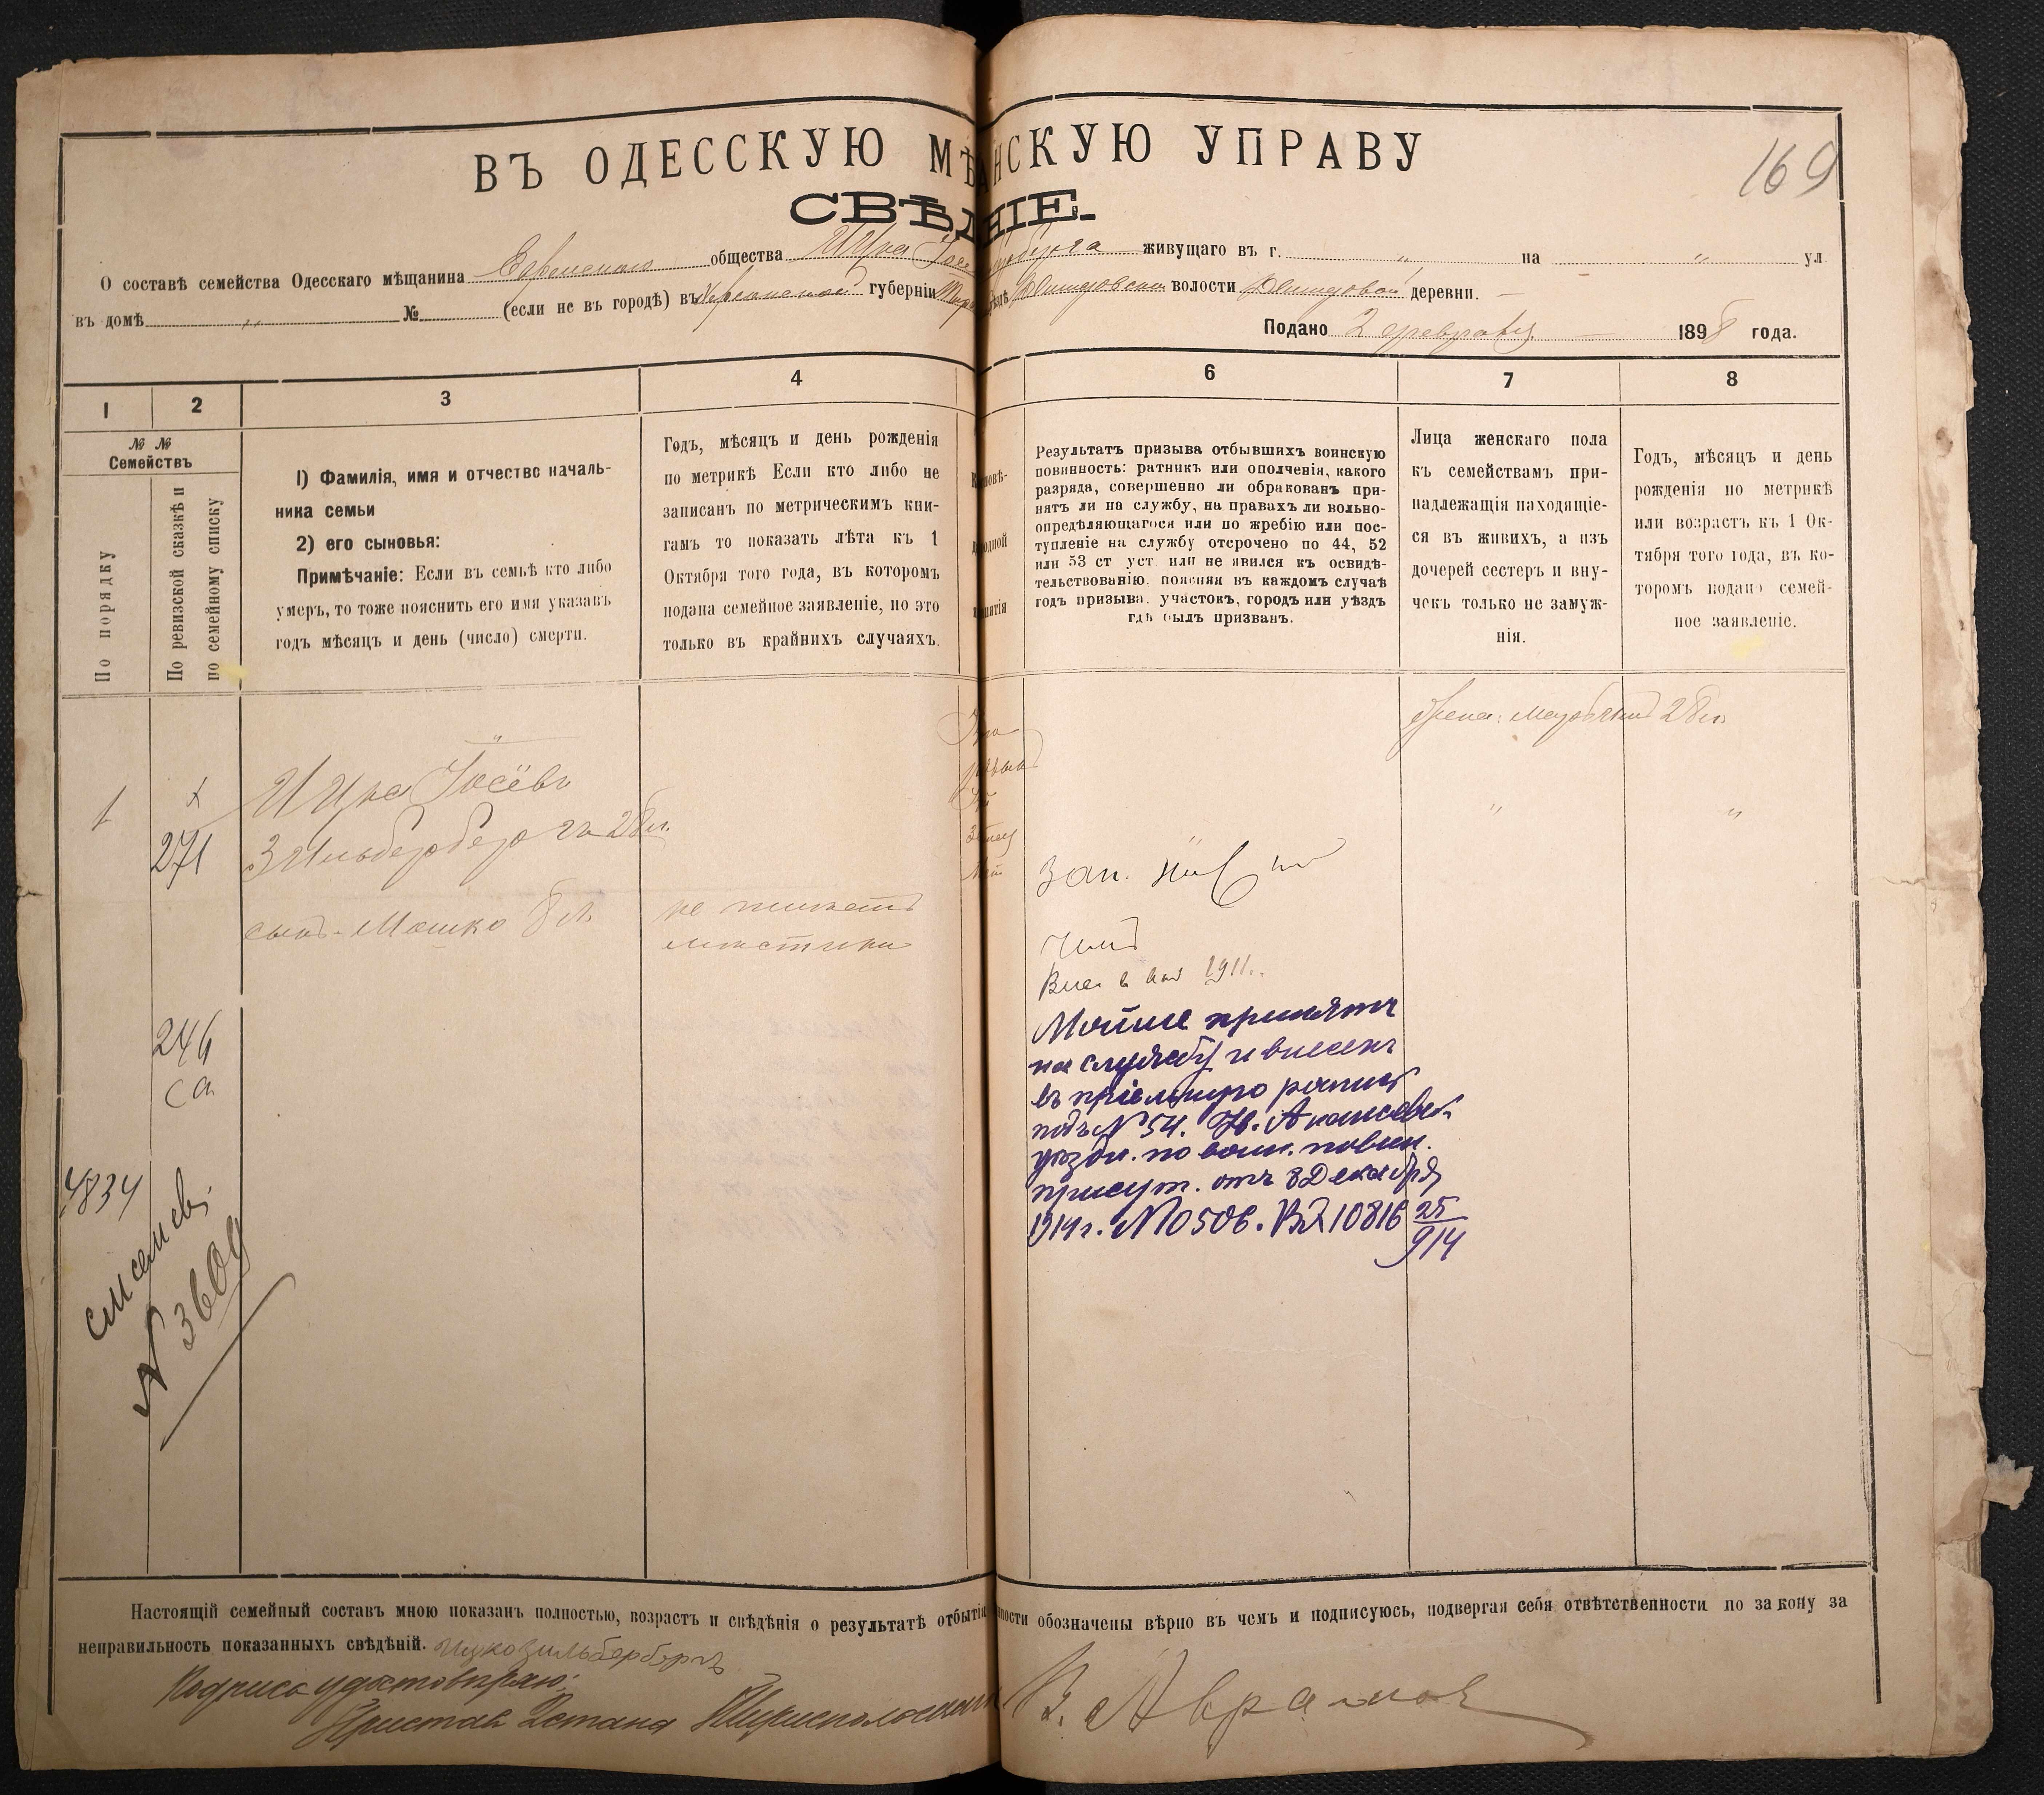 169
ВЪ ОДЕССКУЮ МѢ НСКУЮ УПРАВУ
СВѢД НІЕ.
О составѣ семейства Одесскаго мѣщанина Еврейскаго общества Ицка живущаго въ г. „ на „ ул
въ домѣ „ № (если не въ городѣ) въ Херсонской губерніи волости деревни. —
Подано 2 февраля 1898 года.
1 2 3 4 6 7 8
№ №
Семействъ
По порядку
По ревизской сказкѣ и
по семейному списку
1) Фамилія, имя и отчество началь-
ника семьи
2) его сыновья:
Примѣчаніе: Если въ семьѣ кто либо
умеръ, то тоже пояснить его имя указавъ
годъ мѣсяцъ и день (число) смерти.
Годъ, мѣсяцъ и день рожденія
по метрикѣ Если кто либо не
записанъ по метрическимъ кни-
гамъ то показать лѣта къ 1
Октября того года, въ которомъ
подана семейное заявленіе, но это
только въ крайнихъ случаяхъ.
Результатъ призыва отбывшихъ воинскую
повинность: ратникъ или ополченія, какого
разряда, совершенно ли обракованъ при-
нятъ ли на службу, на правахъ ли вольно-
опредѣляющагося или по жребію или пос-
тупленіе на службу отсрочено по 44, 52
или 53 ст уст. или не явился къ освидѣ-
тельствованію. поясняя въ каждомъ случаѣ
годъ призыва. участокъ, городъ или уѣздъ
гдѣ былъ призванъ.
Лица женскаго пола
къ семействамъ при-
надлежащія находящіе-
ся въ живихъ, а изъ
дочерей сестеръ и вну-
чекъ только не замуж-
нія.
Годъ, мѣсяцъ и день
рожденія по метрикѣ
или возрастъ къ 1 Ок-
тября того года, въ ко-
торомъ подано семей-
ное заявленіе.
жена: 28 л.
1 271 Ицка Іосёвъ
Зильберберъгъ 28 л.
сынъ Мошко 8 л.
не имѣетъ
метрики
Зап.
1911.
246
са
4834
См семейн.
№ 3609
Мойше принятъ
на службу и внесенъ
въ пріемную роспись
подъ № 54. Ананьевск.
уѣздн. по воин. повин.
присут. отъ 8 Декабря
1914 г. № 10506. Вх 10816 25/914
Настоящій семейный составъ мною показанъ полностью, возрастъ и свѣдѣнія о результатѣ отбытія ности обозначены вѣрно въ чемъ и подписуюсь, подвергая себя отвѣтственности по закону за
неправильность показанныхъ свѣдѣній. Ицко Зильберберъгъ
Подпись удостовѣряю:
Приставъ 2 стана